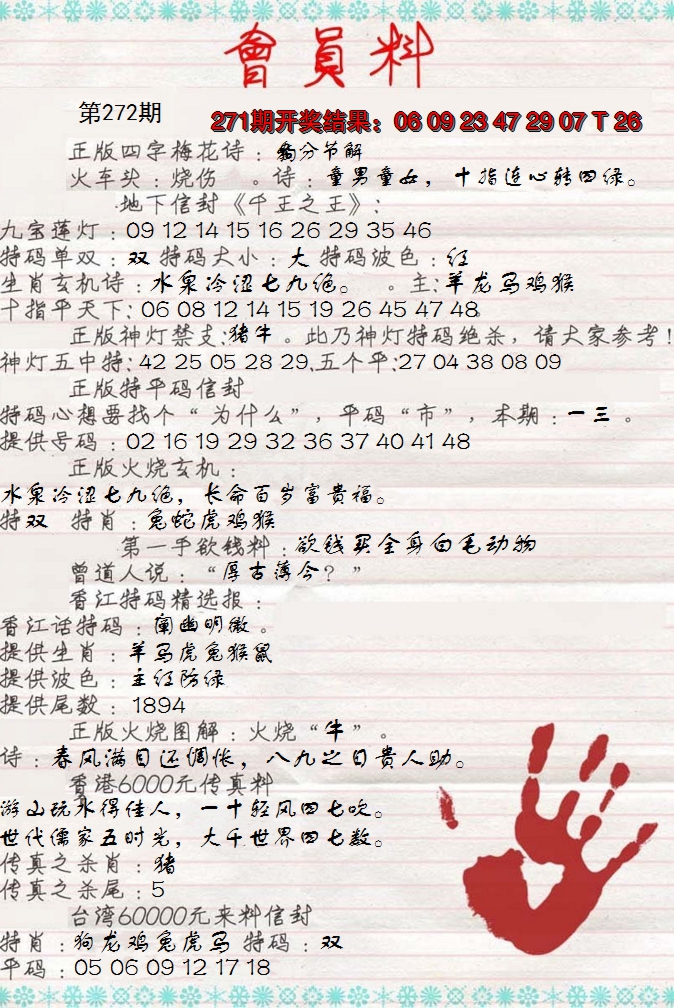 會員料
第272期
271期开奖结果：06 09 23 47 29 07 T 26
正版四字梅花诗：豹分节解
火车头：烧伤 。诗：童男童女，十指连心转四绿。
地下信封《千王之王》：
九宝莲灯：09 12 14 15 16 26 29 35 46
特码单双：双 特码大小：大 特码波色：红
生肖玄机诗：水泉冷涩七九绝。 。主:羊龙马鸡猴
十指平天下: 06 08 12 14 15 19 26 45 47 48
正版神灯禁支:猪牛 。此乃神灯特码绝杀，请大家参考!
神灯五中特: 42 25 05 28 29.五个平:27 04 38 08 09
正版特平码信封
特码心想要找个“ 为什么”，平码“市”，本期：一三 。
提供号码：02 16 19 29 32 36 37 40 41 48
正版火烧玄机：
水泉冷涩七九绝，长命百岁富贵福。
特双 特肖：兔蛇虎鸡猴
第一手欲钱料：欲钱买全身白毛动物
曾道人说：“厚古薄今？”
香江特码精选报：
香江话特码：阐幽明微 。
提供生肖：羊马虎兔猴鼠
提供波色：主红防绿
提供尾数：1894
正版火烧图解：火烧“牛” 。
诗：春风满目还惆怅，八九之日贵人助。
香港6000元传真料
游山玩水得佳人，一十轻风四七吹。
世代儒家五时光，大千世界四七数。
传真之杀肖：猪
传真之杀尾：5
台湾60000元来料信封
特肖：狗龙鸡兔虎马 特码：双
平码：05 06 09 12 17 18